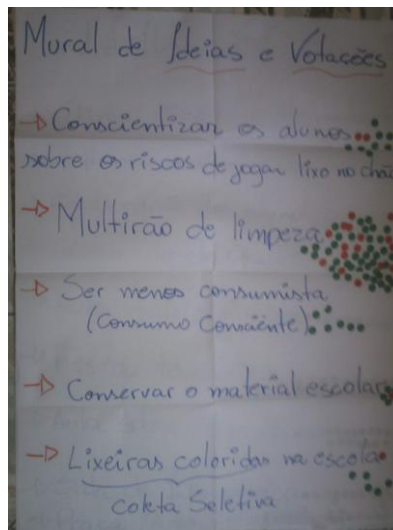 Mural de Ideias e Votações
→ Conscientizar os alunos
sobre os riscos de jogar lixo no chão
→ Multirão de limpeza
→ Ser menos consumista
(Consumo Consciente)
→ Conservar o material escolar
→ Lixeiras coloridas na escola
Coleta Seletiva